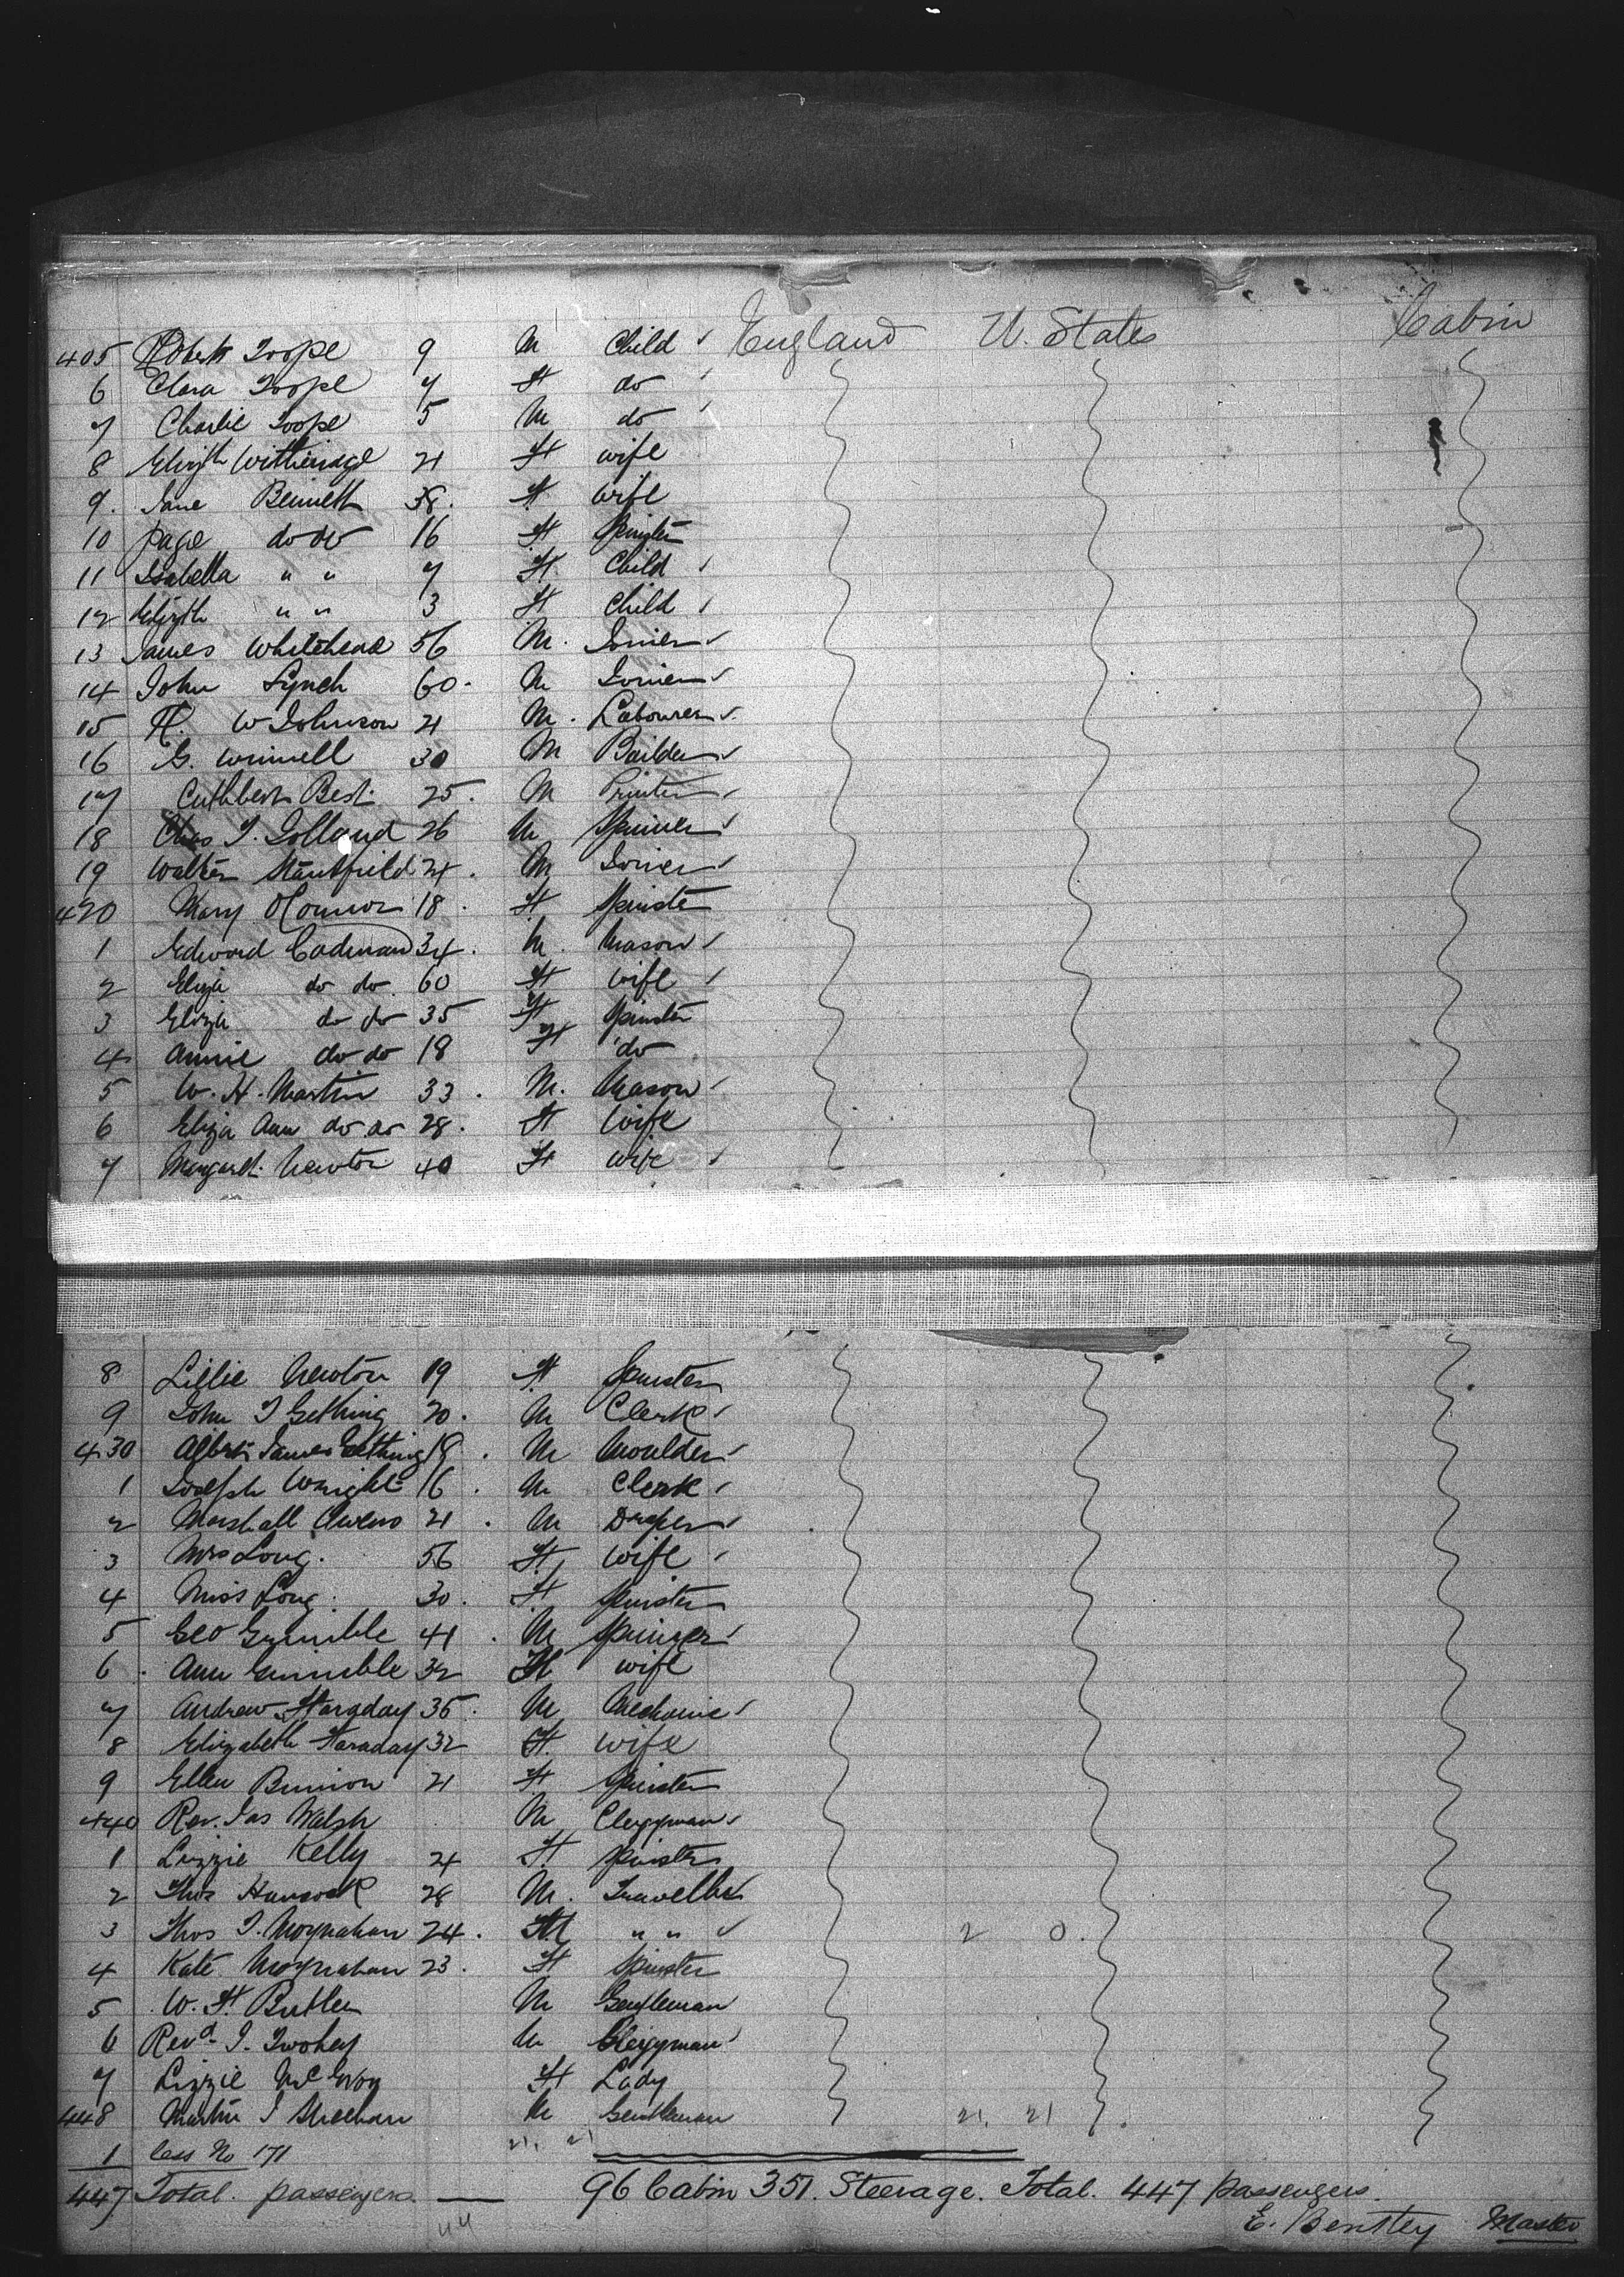 405 Robert Toope 9 M Child England U. States Cabin
6 Clara Toope 7 F do
7 Charlie Toope 5 M do
8 Elizth Witheridge 21 F wife
9. Jane Bennett 38. F wife
10 page do do 16 F Spinster
11 Isabella " " 7 F. Child
12 Elizth " " 3 F Child
13 James Whitehead 56 M. Joiner
14 John Lynch 60. M Joiner
15 H. W Johnson 21 M. Labourer
16 G. Winnell 30 M Builder
17 Cuthbert Best 25. M Printer
18 Chas J. Golland 26 M Spinner
19 Walter Stansfield 24. M Joiner
420 Mary O'Connor 18. F Spinster
1 Edward Cadman 34. M. Mason
2 Eliza do do 60 F wife
3 Eliza do do 35 F Spinster
4 Annie do do 18 F do
5 W. H. Martin 33. M. Mason
6 Eliza Ann do do 28. F Wife
7 Margaret Newton 40 F wife
8 Lillie Newton 19 F Spinster
9 John J Gething 20. M Clerk
430 Albert James Gething 18. M Moulder
1 Joseph Wright 16. M Clerk
2 Marshall Owens 21. M Draper
3 Mrs Long. 56 F. wife
4 Miss Long. 30. F Spinster
5 Geo Grimble 41. M Spinner
6. Ann Grimble 32 F wife
7 Andrew Faraday 35. M Mechanic
8 Elizabeth Faraday 32 F. wife
9 Ellen Bunion 21 F Spinster
440 Rev. Jas Walsh M Clergyman
1 Lizzie Kelly 24 F Spinster
2 Thos Hancock 28 M. Traveller
3 Thos J. Moynahan 24. M " " 2 0.
4 Kate Moynahan 23. F Spinster
5 W. F. Butler M Gentleman
6 Revd. J. Twohey M Clergyman
7 Lizzie McEvoy F Lady
448 Martin J Sheehan M Gentleman 21. 21
1 less No 171 21. 21
447 Total passengers. — 96 Cabin 351. Steerage. Total. 447 passengers.
44 E. Bentley Master